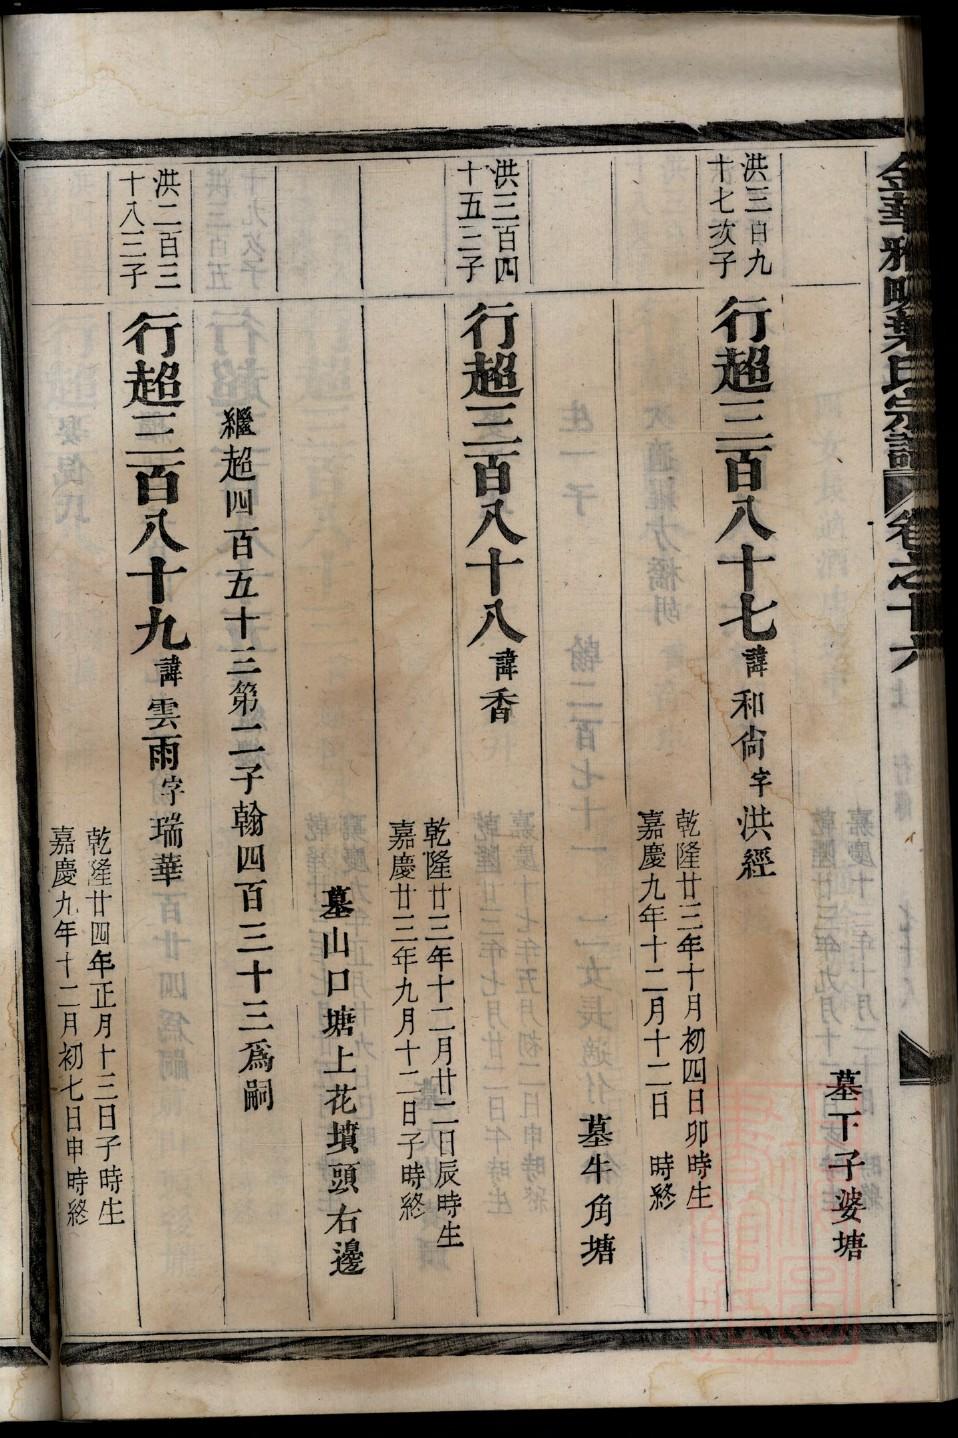 金華雅畈葉氏宗譜 卷之十六
墓下子婆塘
洪三百九
十七次子
行超三百八十七 諱和尙字洪經
乾隆廿三年十月初四日卯時生
嘉慶九年十二月十二日 時終
墓牛角塘
洪三百四
十五三子
行超三百八十八 諱香
乾隆廿三年十二月廿二日辰時生
嘉慶廿三年九月十二日子時終
墓山口塘上花墳頭右邊
繼超四百五十三第二子翰四百三十三爲嗣
洪二百三
十八三子
行超三百八十九 諱雲雨字瑞華
乾隆廿四年正月十三日子時生
嘉慶九年十二月初七日申時終